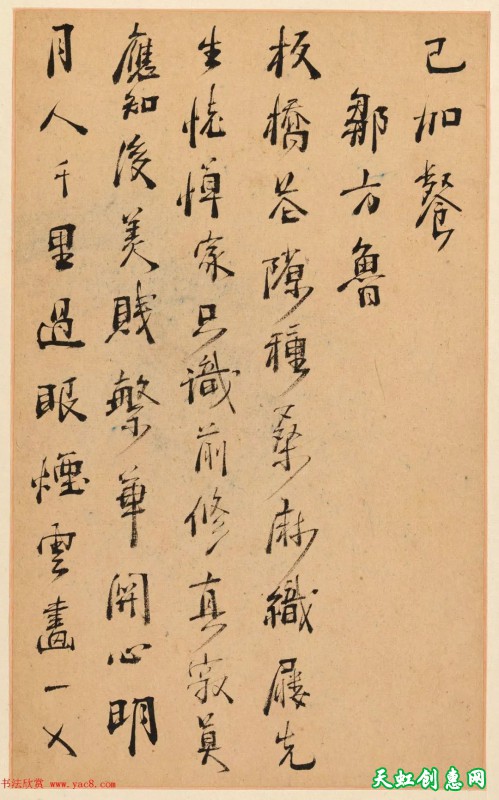 已加餐
鄒方魯
板橋隙種桑麻織屨先
生家只識前修真寂莫
應知後美賤繁華開心明
月人千里過眼煙雲畫一叉
书法欣赏 www.yac8.com
天虹创意网